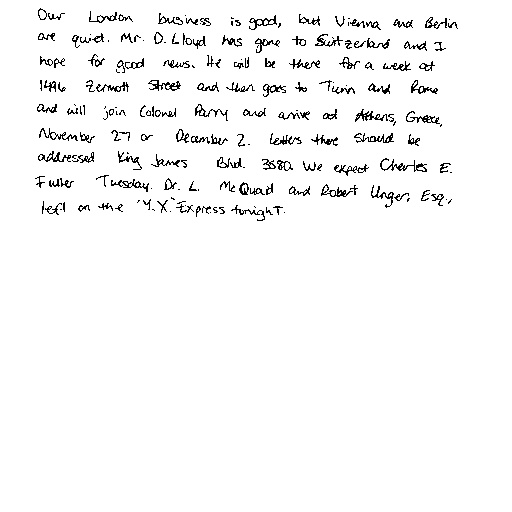 Our London business is good, but Vienna and Berlin
are quiet. Mr. D. Lloyd has gone to Switzerland and I
hope for good news. He will be there for a week at
1496 Zermott Street and then goes to Turin and Rome
and will join Colonel Parry and arrive at Athens, Greece,
November 27 or December 2. Letters there should be
addressed King James Blvd. 3580. We expect Charles E.
Fuller Tuesday. Dr. L. McQuaid and Robert Unger, Esq.,
left on the "Y.X." Express tonight.